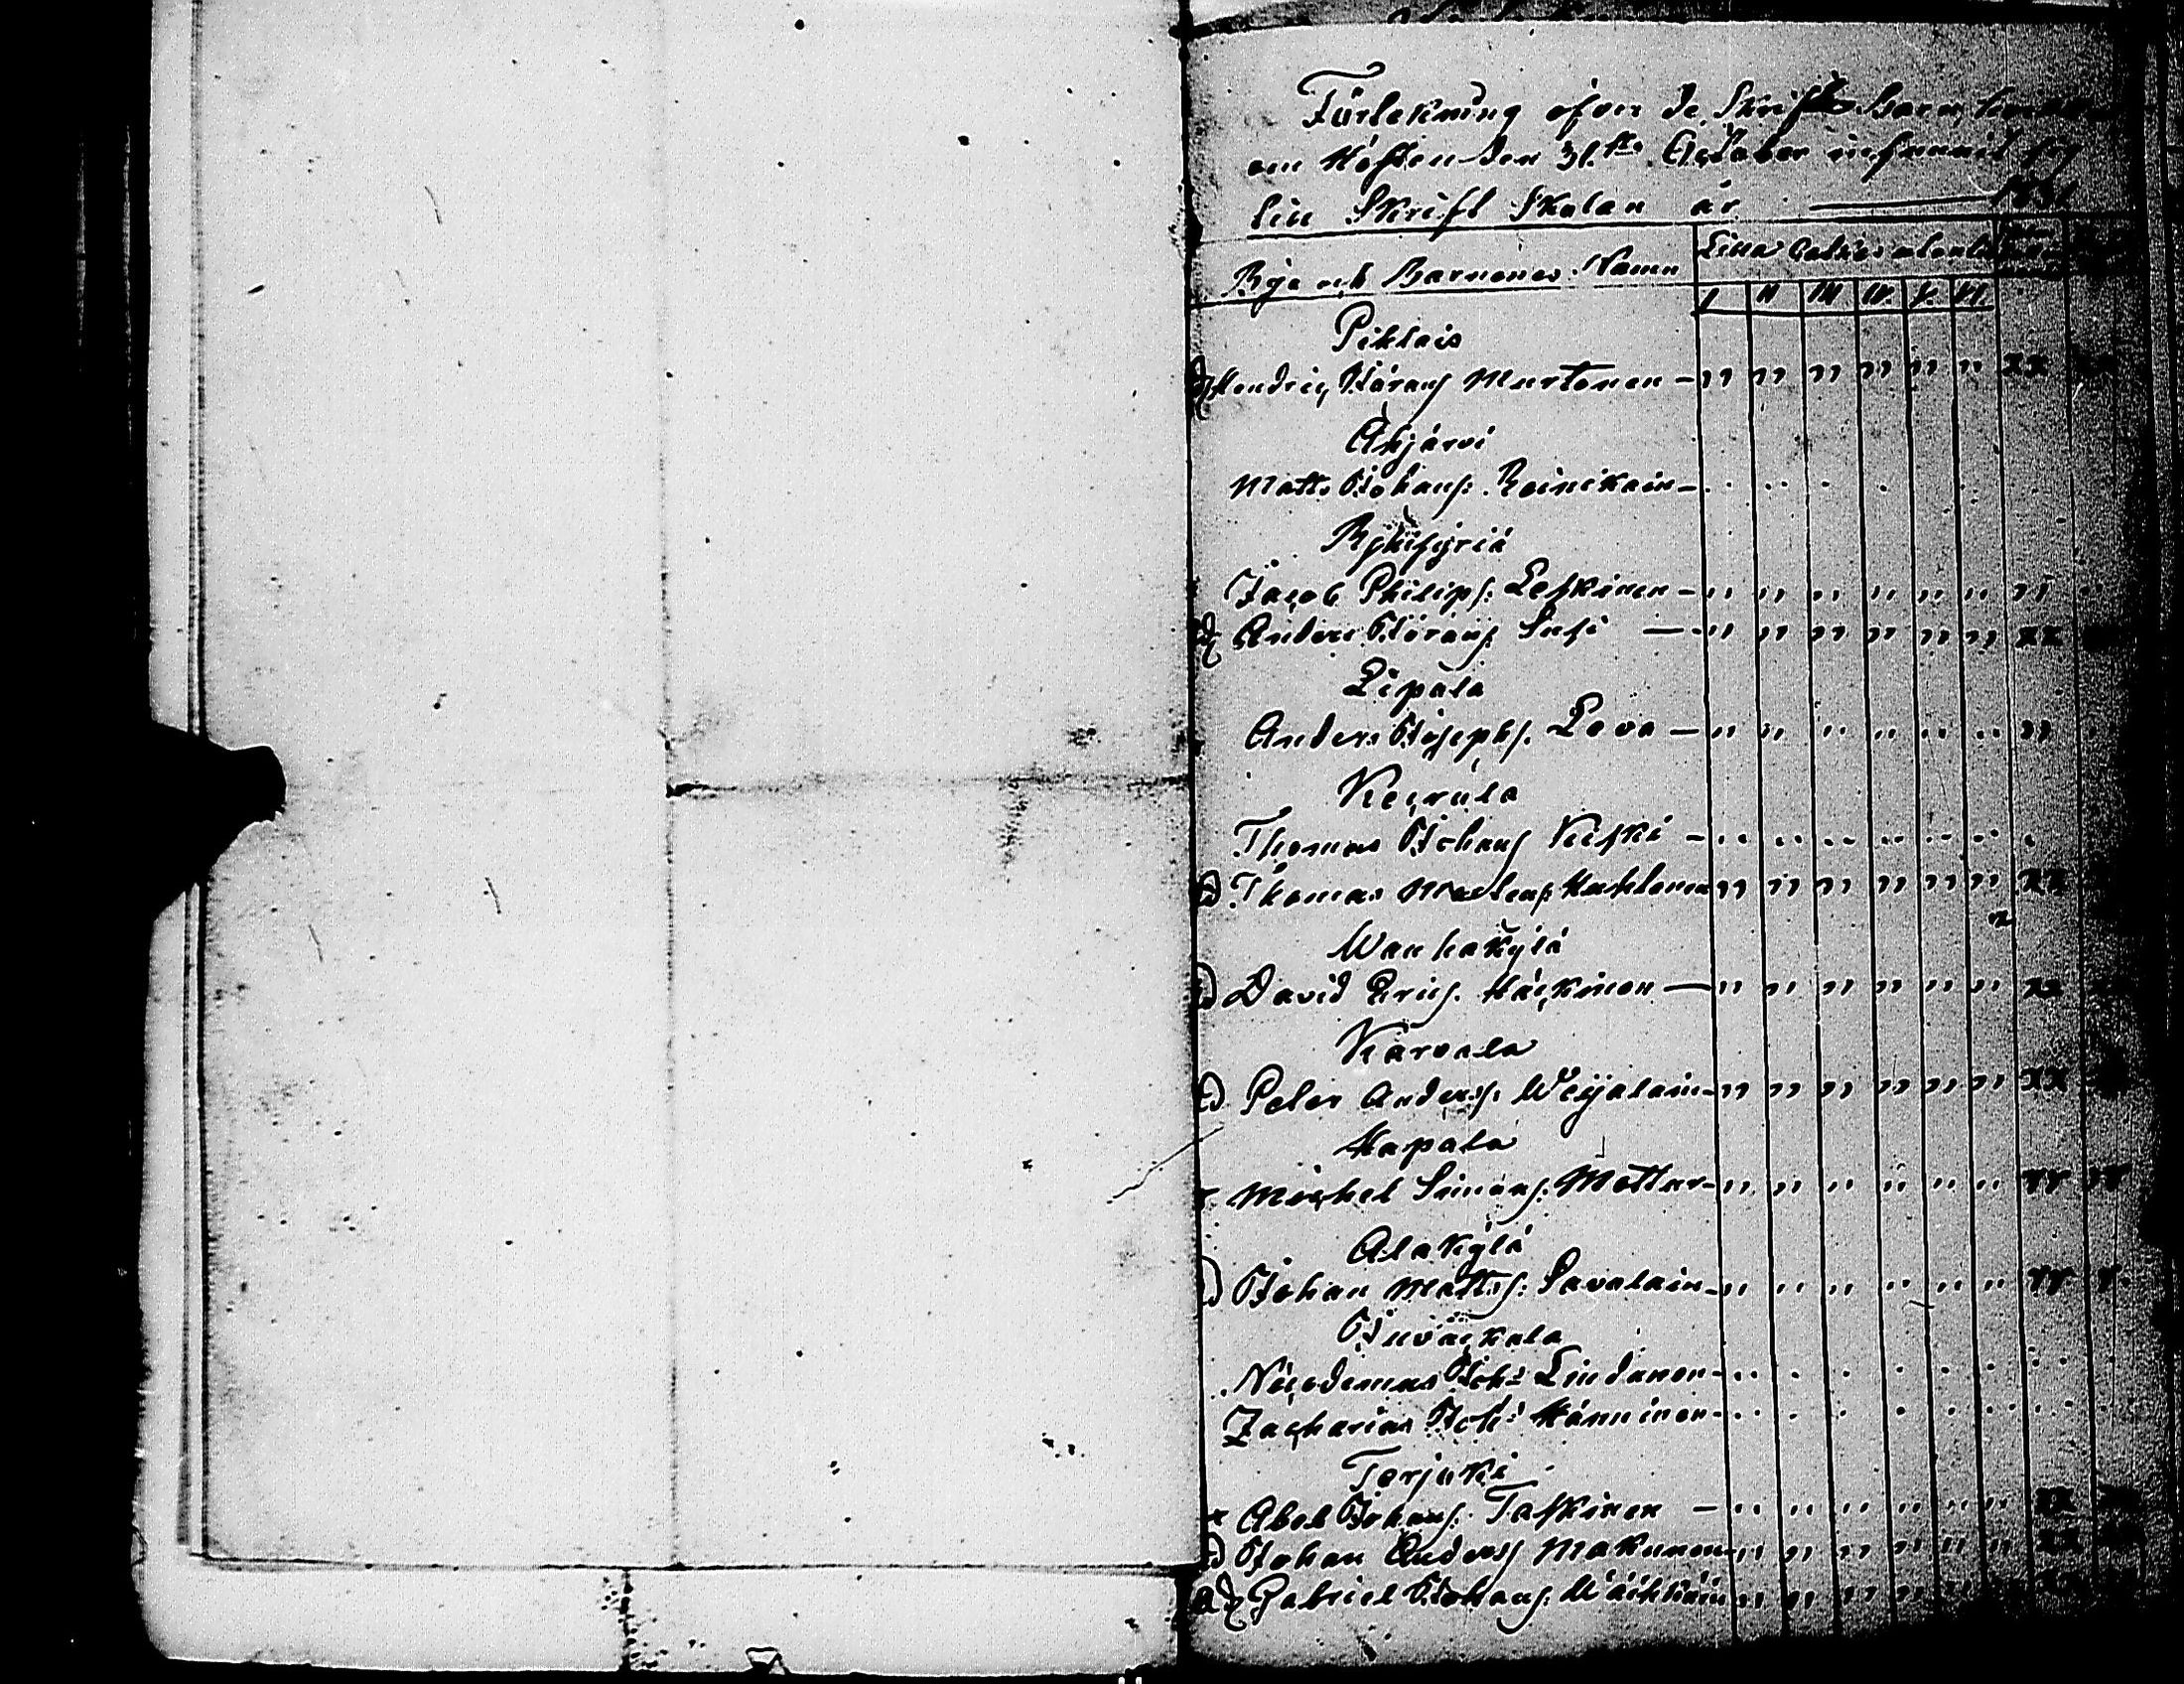 Förtekning öfver de Skrift Barn,
om Hösten den 31.sta October infunnit sig
Skrift Skolan år 1831
Byе och Barnenes Namn
I II III IV. V. VI.
Pihlais
Hendric Görans Murtonen - " " " " " " xx
Ahjärvi
Matts Johans: Reinikain -
Ryhisyriä
Jacob Philips: Leskinen - " " " " " " "
Anders Görans Susi - " " " " " " xx
Lipala
Anders Josephs. Leva - " " " " " " "
Kecrula
Thomas Johans Kiiski -
Thomas " " " " " " xx
Wanhakylä
David Erics. Häckinen - " " " " " " xx
Kärvala
Peter Anders: Weijalain - " " " " " " xx
Hapala
Michel Simons: Mottur - " " " " " " xx xx
Alakylä
Johan Matts: Savolain - " " " " " " xx
Juväckala
Nicodemus Joh: Lindanen -
Zacharias Joh: Hänninen -
Terjuki
Abel Johans: Taskinen - " " " " " " xx
Johan Anders Makunen " " " " " " xx
Gabriel Johans: " " " " " "